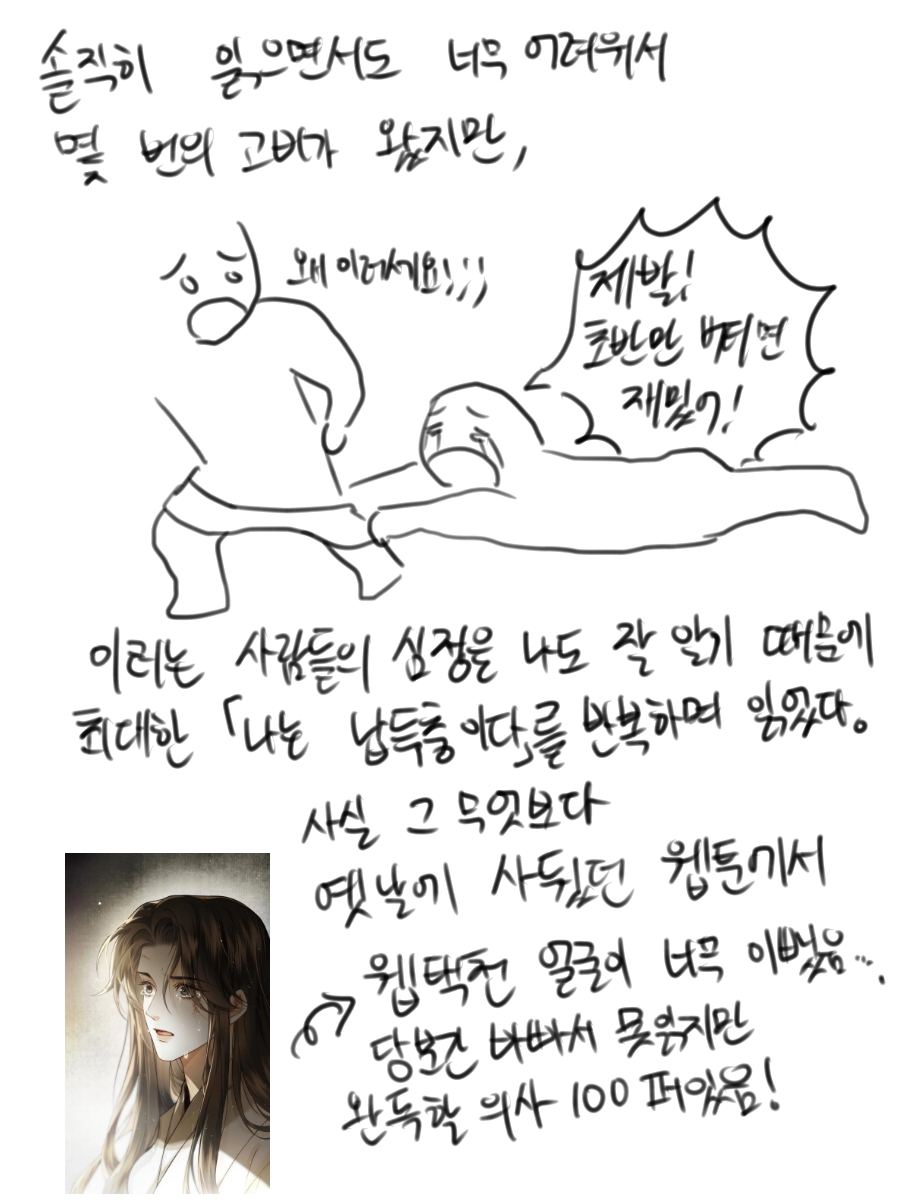 솔직히 읽으면서도 너무 어려워서
몇 번의 고비가 왔지만,
왜 이러세요!;;
제발!
초반만 버티면
재밌어!
이러는 사람들의 심정은 나도 잘 알기 때문에
최대한 「나는 납득충이다」를 반복하며 읽었다。
사실 그 무엇보다
옛날에 사뒀던 웹툰에서
웹택천 얼굴이 너무 이뻤음....
당보간 바빠서 못읽지만
완독할 의사 100퍼있음!